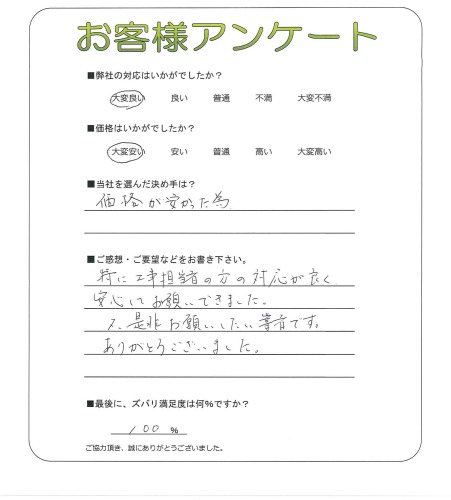 お客様アンケート
■弊社の対応はいかがでしたか？
大変良い 良い 普通 不満 大変不満
■価格はいかがでしたか？
大変安い 安い 普通 高い 大変高い
■当社を選んだ決め手は？
価格が安かった為
■ご感想・ご要望などをお書き下さい。
特に工事担当者の方の対応が良く、
安心してお願いできました。
又、是非お願いしたい業者です。
ありがとうございました。
■最後に、ズバリ満足度は何%ですか？
100 %
ご協力頂き、誠にありがとうございました。